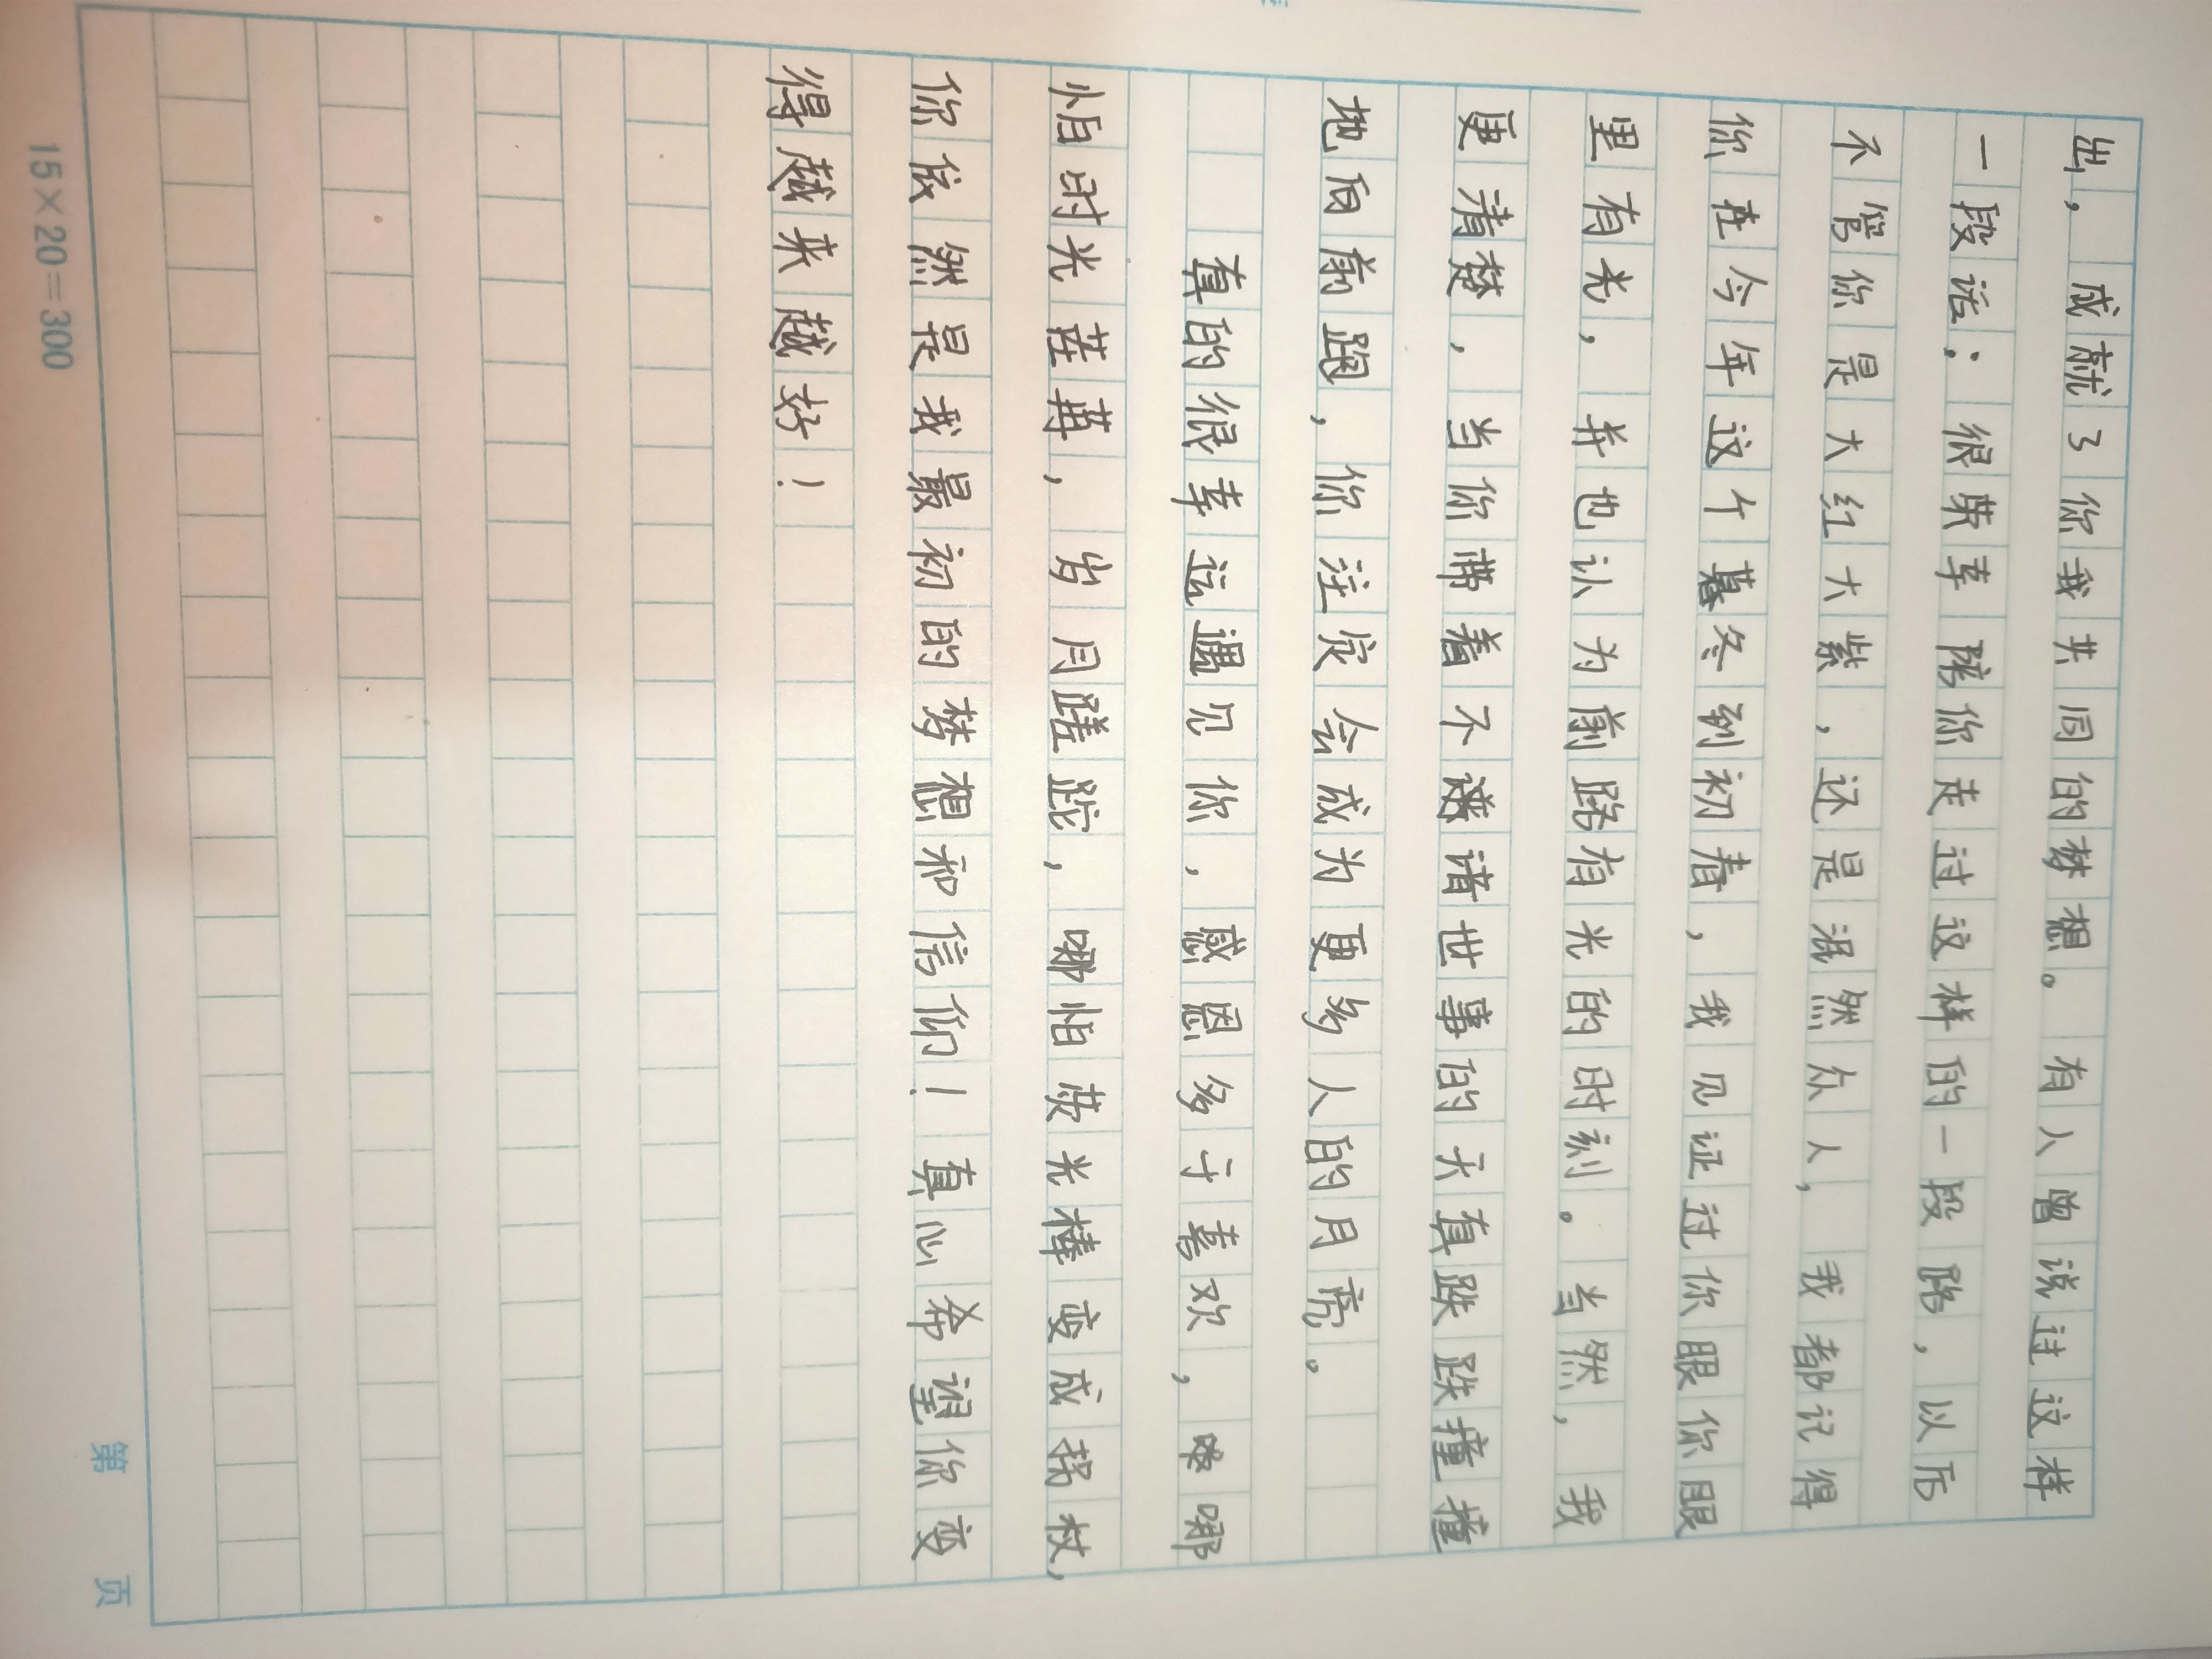 出，成就了你我共同的梦想。有人曾说过这样
一段话：很荣幸陪你走过这样的一段路，以后
不管你是大红大紫，还是泯然众人，我都记得
你在今年这个暮冬到初春，我见证过你眼你眼
里有光，并也认为前路有光的时刻。当然，我
更清楚，当你带着不谙世事的天真跌跌撞撞
地向前跑，你注定会成为更多人的月亮。
真的很幸运遇见你，感恩多于喜欢，哪
怕时光荏苒，岁月蹉跎，哪怕荧光棒变成拐杖，
你依然是我最初的梦想和信仰！真心希望你变
得越来越好！
15×20=300
第 页